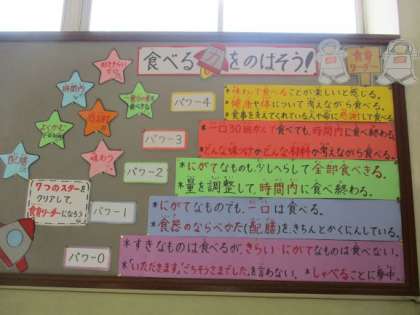 食べる力をのばそう!
食育
リーダー
好ききらい
時間内
食器の置き方
感謝して
配膳
味わう
7つのスターを
クリアして、
食育リーダーになろう
パワー4
*味わって食べることが楽しいと感じる。
*健康や体について考えながら食べる。
*食事を支えてくれている人や命に感謝して食べる
パワー3
*一口30回かんで食べても、時間内に食べ終わる。
*どんな味つけかどんな材料か考えながら食べる。
パワー2
*にがてなものも、少しへらして全部食べきる。
*量を調整して、時間内に食べ終わる。
パワー1
*にがてなものでも、一口は食べる。
*食器のならべかた(配膳)を、きちんとかくにんしている。
パワー0
*すきなものは食べるが、きらい・にがてなものは食べない。
*「いただきます」「ごちそうさまでした」を言わない。*しゃべることに夢中。